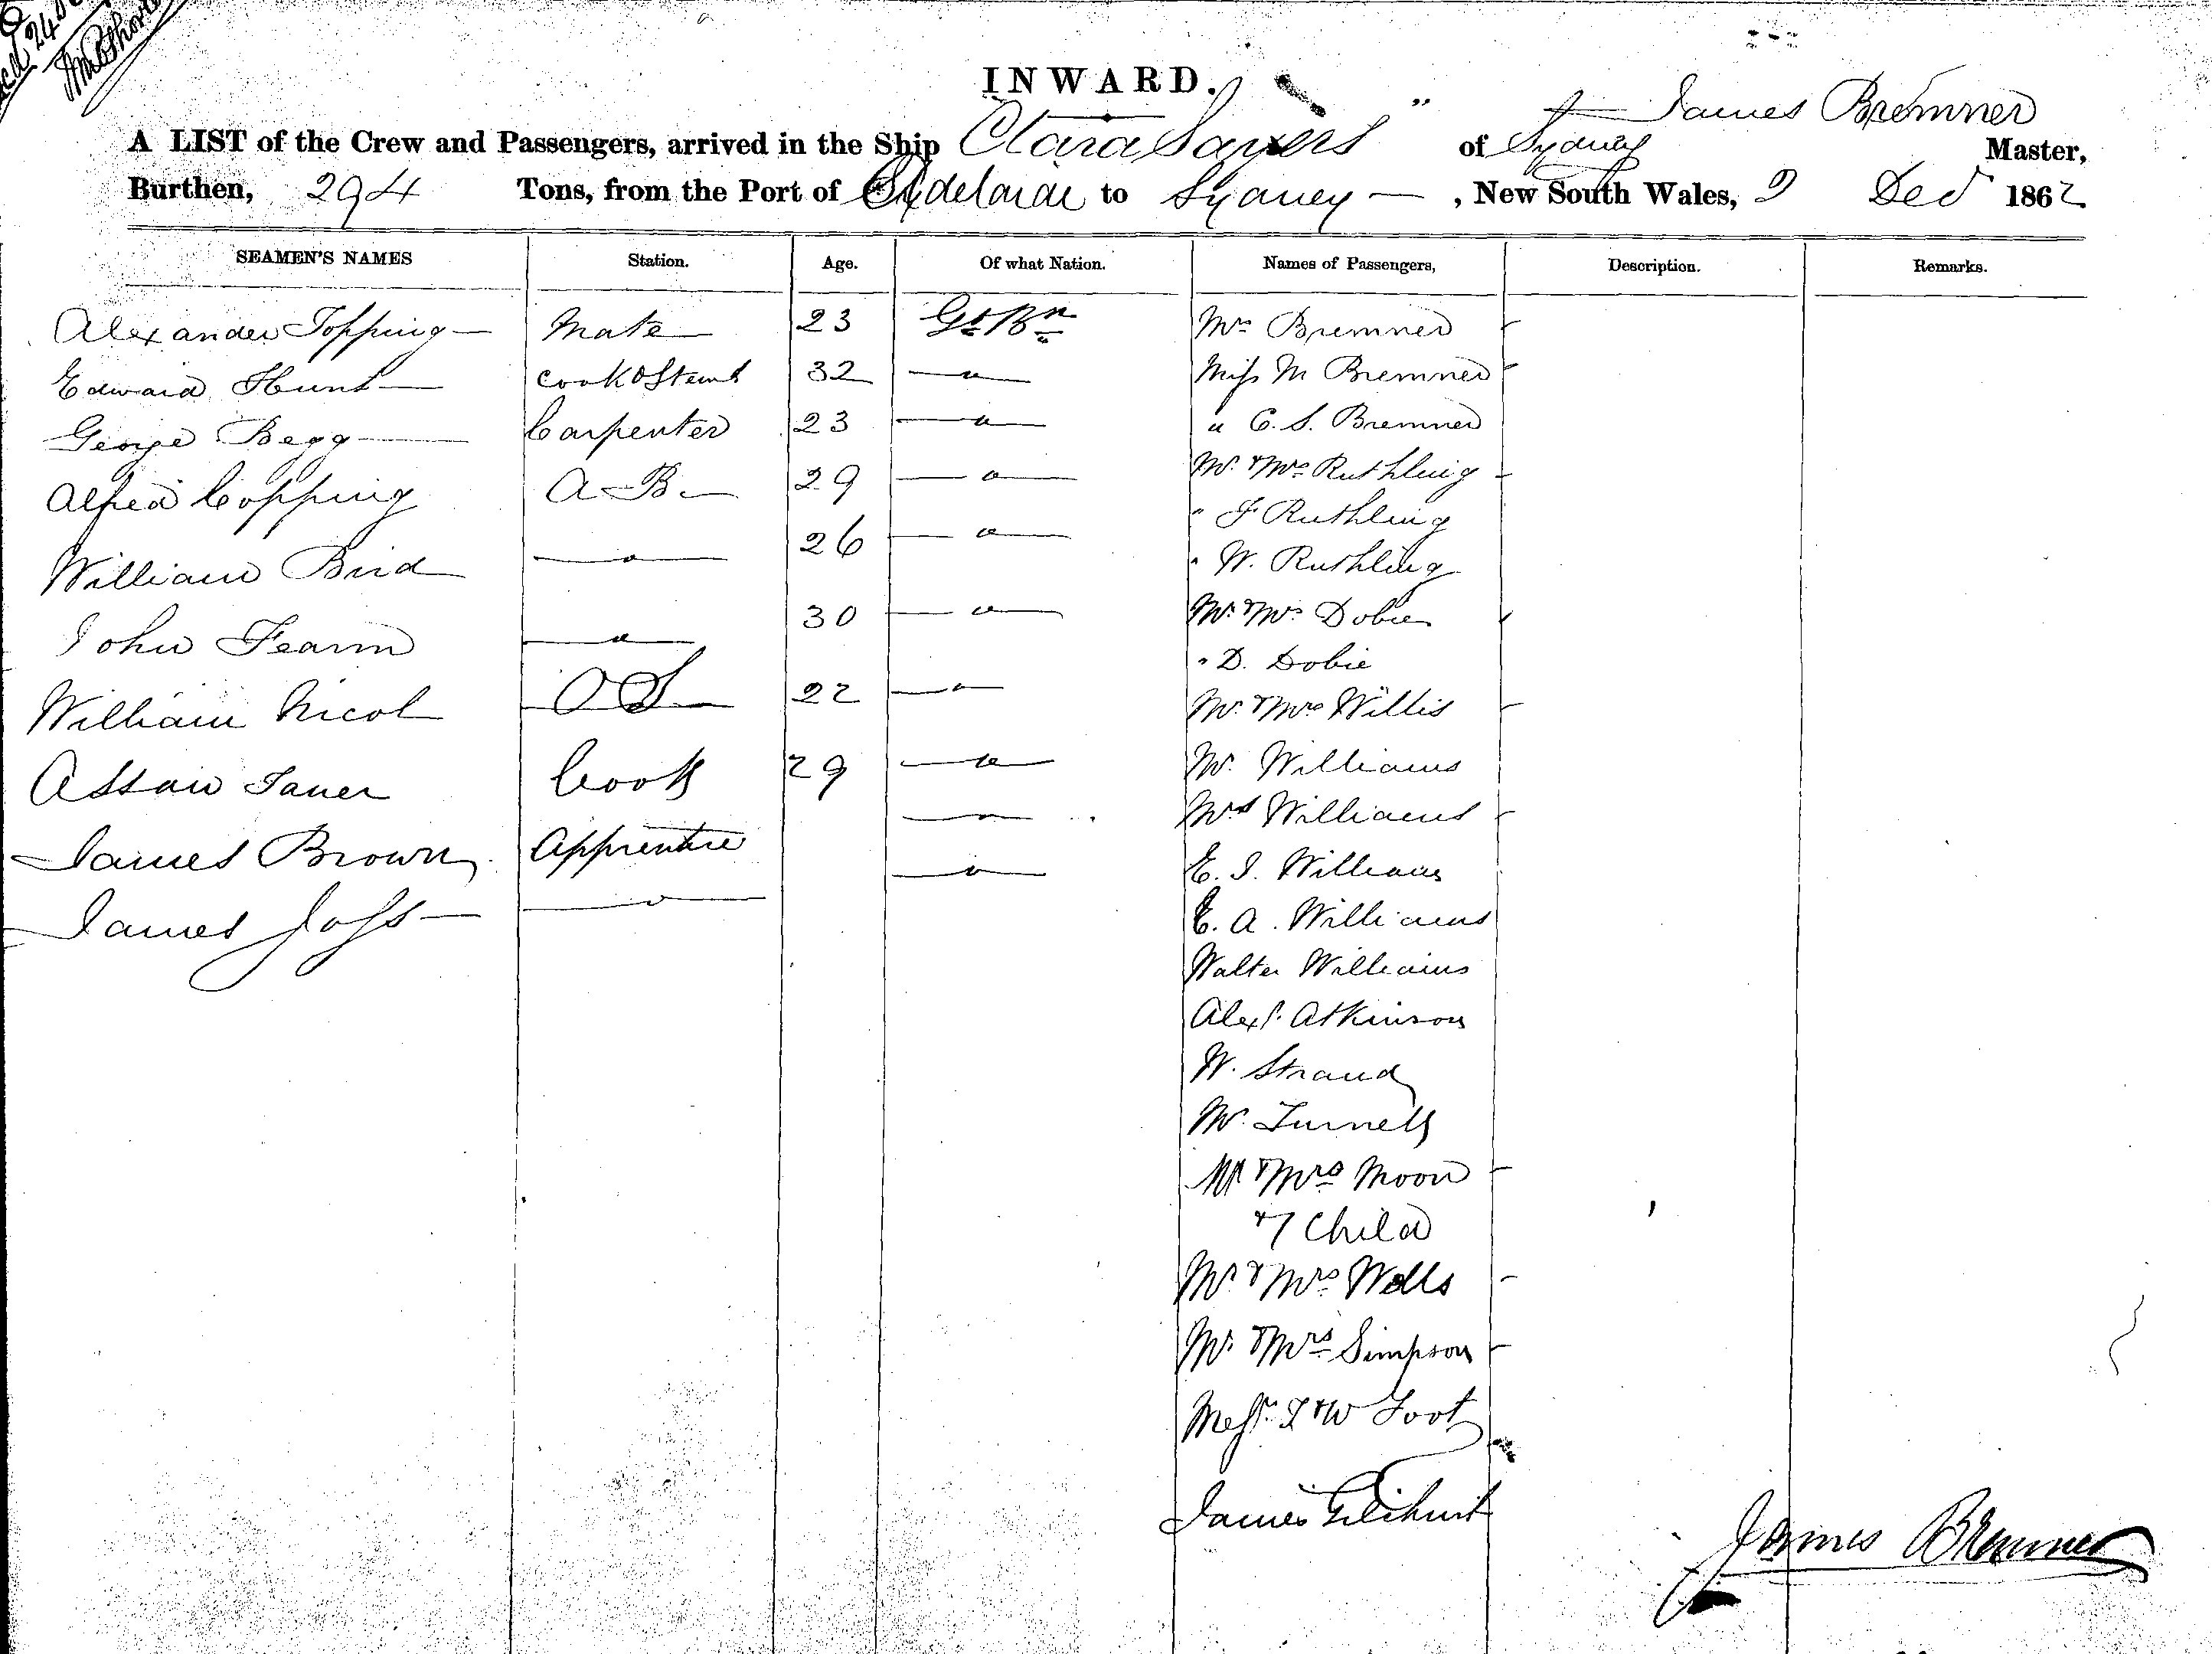 INWARD.
A LIST of the Crew and Passengers, arrived in the Ship Clara Sayers" of Sydney James Bremner Master,
Burthen, 294 Tons, from the Port of Adelaide to Sydney — , New South Wales, 2 Dec 1862
SEAMEN'S NAMES Station. Age. Of what Nation. Names of Passengers, Description. Remarks.
Alexander Topping — Mate 23 Gt Bn Mrs Bremner
Edward Hunt — Cook & Stewd 32 — " — Miss M Bremner
George Begg — Carpenter 23 — " — " C. S. Bremner
Alfred Copping A B — 29 — " — Mr & Mrs Ruthling
William Bird — " — 26 — " — " F Ruthling
" W. Ruthling
John Fearm — " — 30 — " — Mr & Mrs Dobie
" D. Dobie
William Nicol O S 22 — " — Mr & Mrs Willis
Assaw Cook 29 — " — Mr. Williams
James Brown Apprentice — " — Mrs Williams
James Joss — " — — " — E. J. Williams
E. A. Williams
Walter Williams
Alexr. Atkinson
W. Strand
Mr. Turnell
Mr & Mrs Moon
& 1 Child
Mr & Mrs Wells
Mr & Mrs Simpson
Messrs & W Foot
James
James Bremner